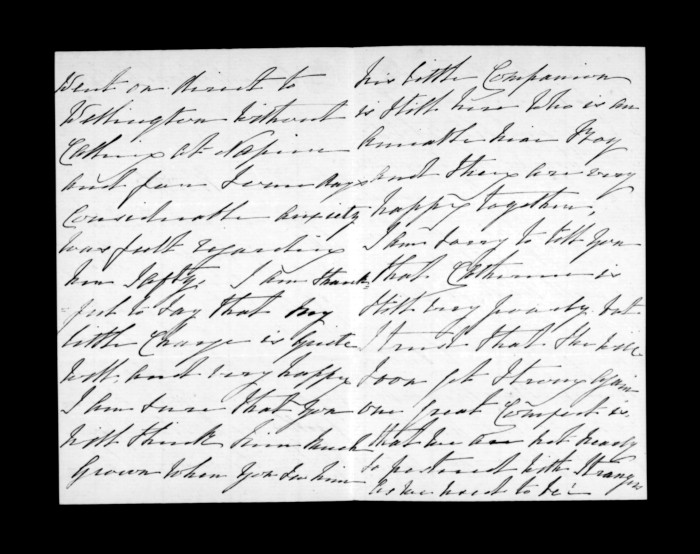 Went on direct to
Wellington without
Calling at Napier
and for some days
Considerable anxiety
was felt regarding
her safty. I am thank
-ful to say that my
little Charge is quite
well. and very happy
I am sure that you
will think him much
Grown when you see him
his little Companion
is still here who is an
amiable nice Boy
and they are very
happy together,
I am sorry to tell you
that Catherine is
still very poorly. but
I trust that she will
soon get strong again
one great Comfort is.
that we are not nearly
so pestered with strangers
as we used to be